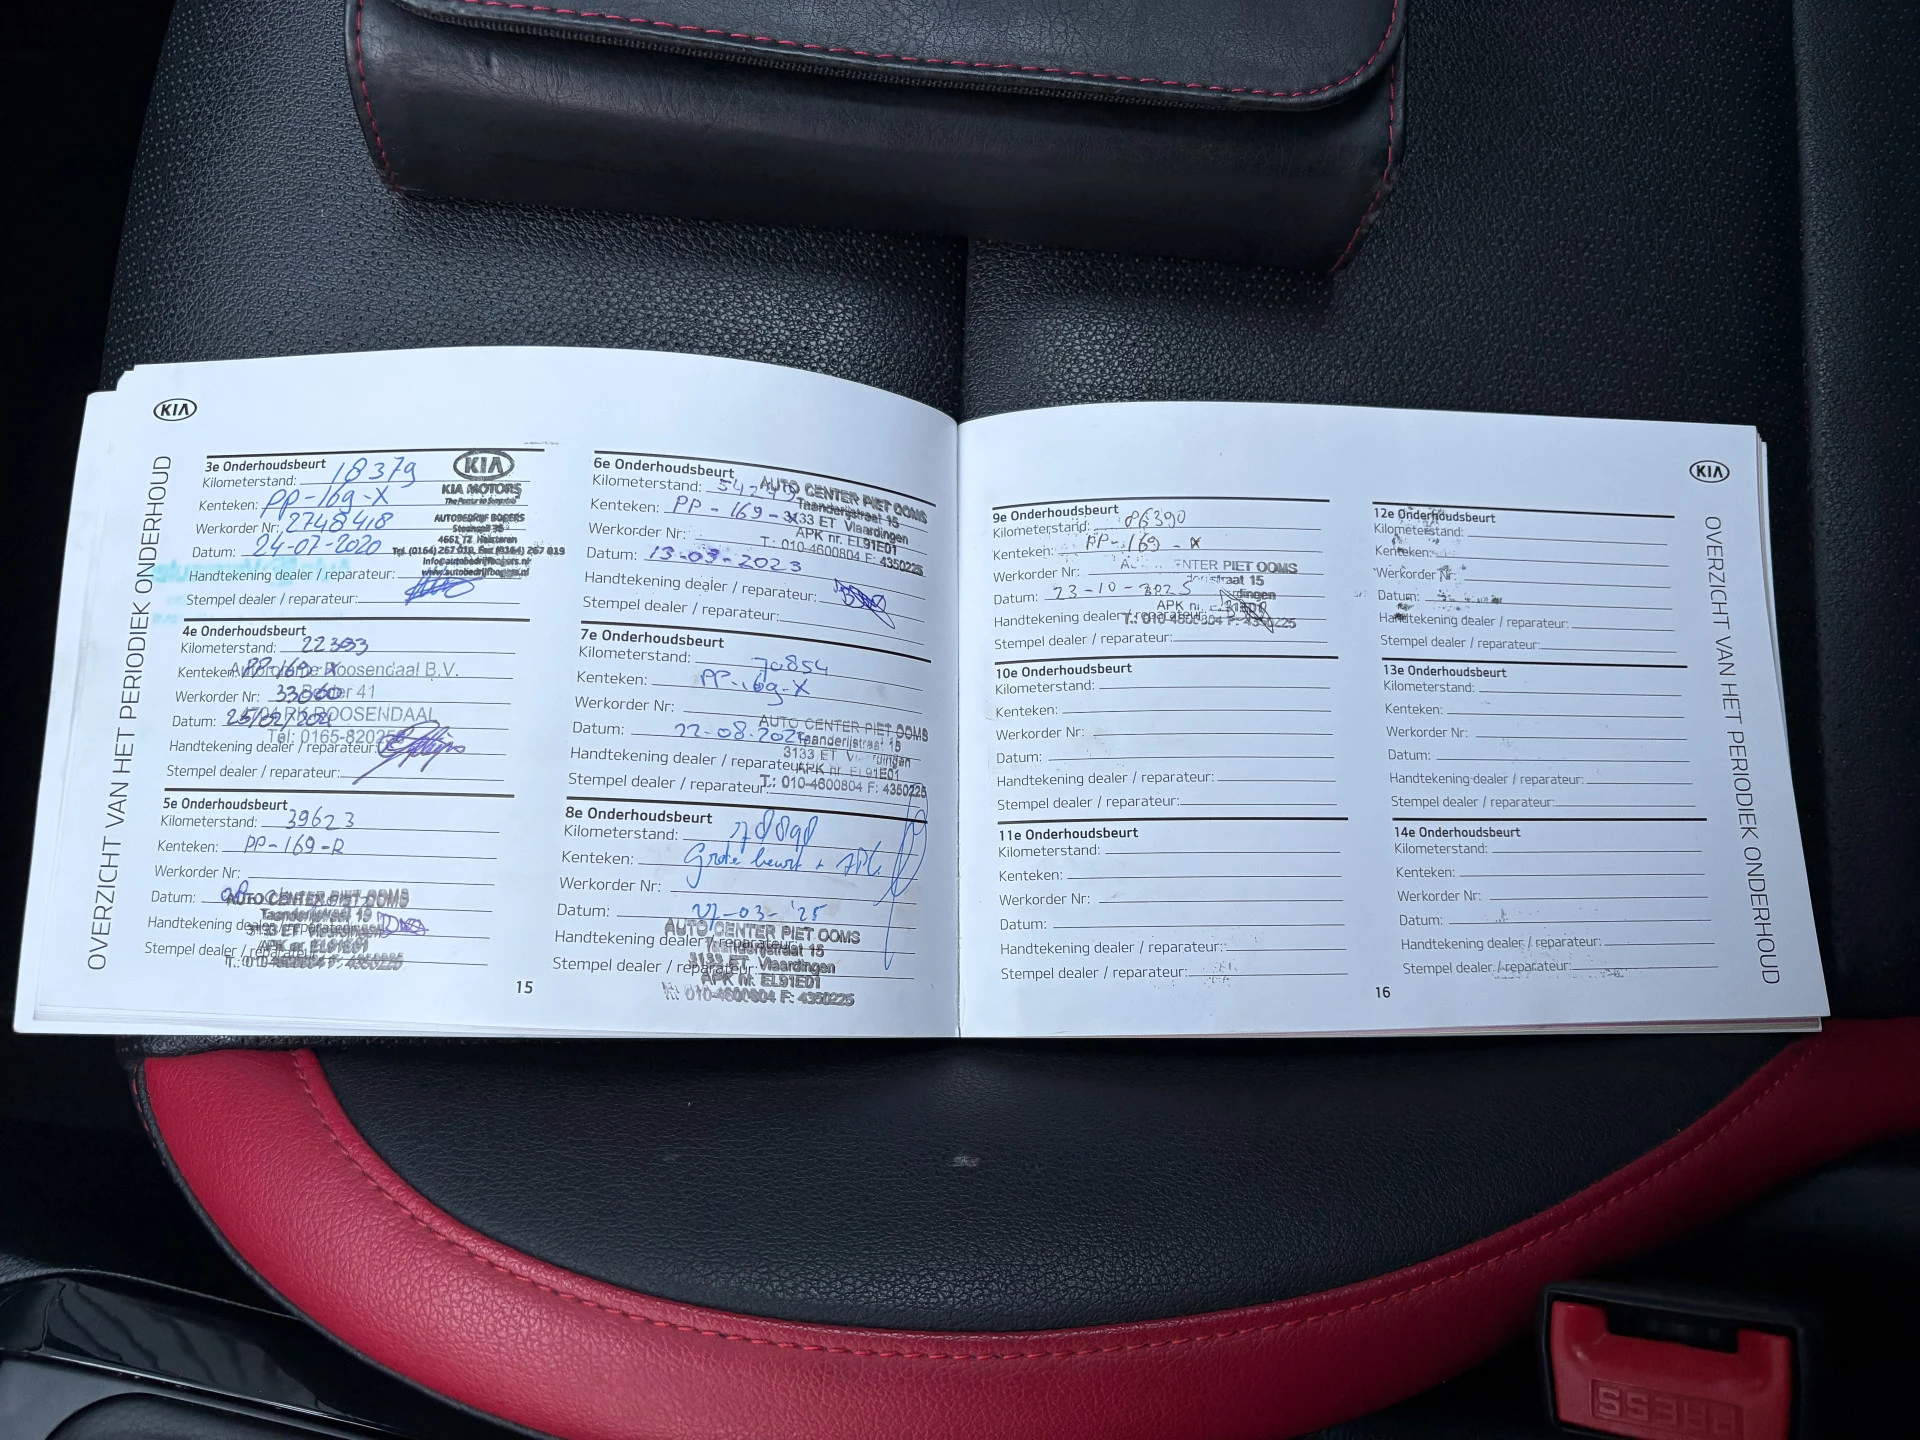 KIA
OVERZICHT VAN HET PERIODIEK ONDERHOUD
3e Onderhoudsbeurt
Kilometerstand: 18379
Kenteken: PP-169-X
Werkorder Nr: 2748418
Datum: 24-07-2020
Handtekening dealer / reparateur:
Stempel dealer / reparateur:
KIA
KIA MOTORS
The Power to Surprise
AUTOBEDRIJF BOGERS
4661 TZ Halsteren
Tel. (0164) 267 019, Fax (0164) 267 019
4e Onderhoudsbeurt
Kilometerstand: 22383
Kenteken: PP-169-X
Werkorder Nr:
Datum:
Handtekening dealer / reparateur:
Stempel dealer / reparateur:
Roosendaal B.V.
41
4704 RK ROOSENDAAL
Tel: 0165-820
5e Onderhoudsbeurt
Kilometerstand: 39623
Kenteken: PP-169-R
Werkorder Nr:
Datum:
Handtekening dealer / reparateur:
Stempel dealer / reparateur:
AUTO CENTER PIET OOMS
6e Onderhoudsbeurt
Kilometerstand:
Kenteken: PP-169-X
Werkorder Nr:
Datum: 13-09-2023
Handtekening dealer / reparateur:
Stempel dealer / reparateur:
AUTO CENTER PIET OOMS
Taanderijstraat 15
3133 ET Vlaardingen
APK nr. EL91E01
T.: 010-4600804 F: 4350225
7e Onderhoudsbeurt
Kilometerstand: 70854
Kenteken: PP-169-X
Werkorder Nr:
Datum: 22-08-202
Handtekening dealer / reparateur:
Stempel dealer / reparateur:
AUTO CENTER PIET OOMS
Taanderijstraat 15
3133 ET Vlaardingen
APK nr. EL91E01
T.: 010-4600804 F: 4350225
8e Onderhoudsbeurt
Kilometerstand:
Kenteken: Grote beurt + APK
Werkorder Nr:
Datum: -03-'25
Handtekening dealer / reparateur:
Stempel dealer / reparateur:
AUTO CENTER PIET OOMS
Taanderijstraat 15
3133 ET Vlaardingen
APK nr. EL91E01
T.: 010-4600804 F: 4350225
15
9e Onderhoudsbeurt
Kilometerstand: 86390
Kenteken: PP-169-X
Werkorder Nr:
Datum: 23-10-2025
Handtekening dealer / reparateur:
Stempel dealer / reparateur:
CENTER PIET OOMS
straat 15
APK nr.
T.: 010-4600804 F: 4350225
10e Onderhoudsbeurt
Kilometerstand:
Kenteken:
Werkorder Nr:
Datum:
Handtekening dealer / reparateur:
Stempel dealer / reparateur:
11e Onderhoudsbeurt
Kilometerstand:
Kenteken:
Werkorder Nr:
Datum:
Handtekening dealer / reparateur:
Stempel dealer / reparateur:
12e Onderhoudsbeurt
Kilometerstand:
Kenteken:
Werkorder Nr:
Datum:
Handtekening dealer / reparateur:
Stempel dealer / reparateur:
13e Onderhoudsbeurt
Kilometerstand:
Kenteken:
Werkorder Nr:
Datum:
Handtekening dealer / reparateur:
Stempel dealer / reparateur:
14e Onderhoudsbeurt
Kilometerstand:
Kenteken:
Werkorder Nr:
Datum:
Handtekening dealer / reparateur:
Stempel dealer / reparateur:
16
KIA
OVERZICHT VAN HET PERIODIEK ONDERHOUD
PRESS